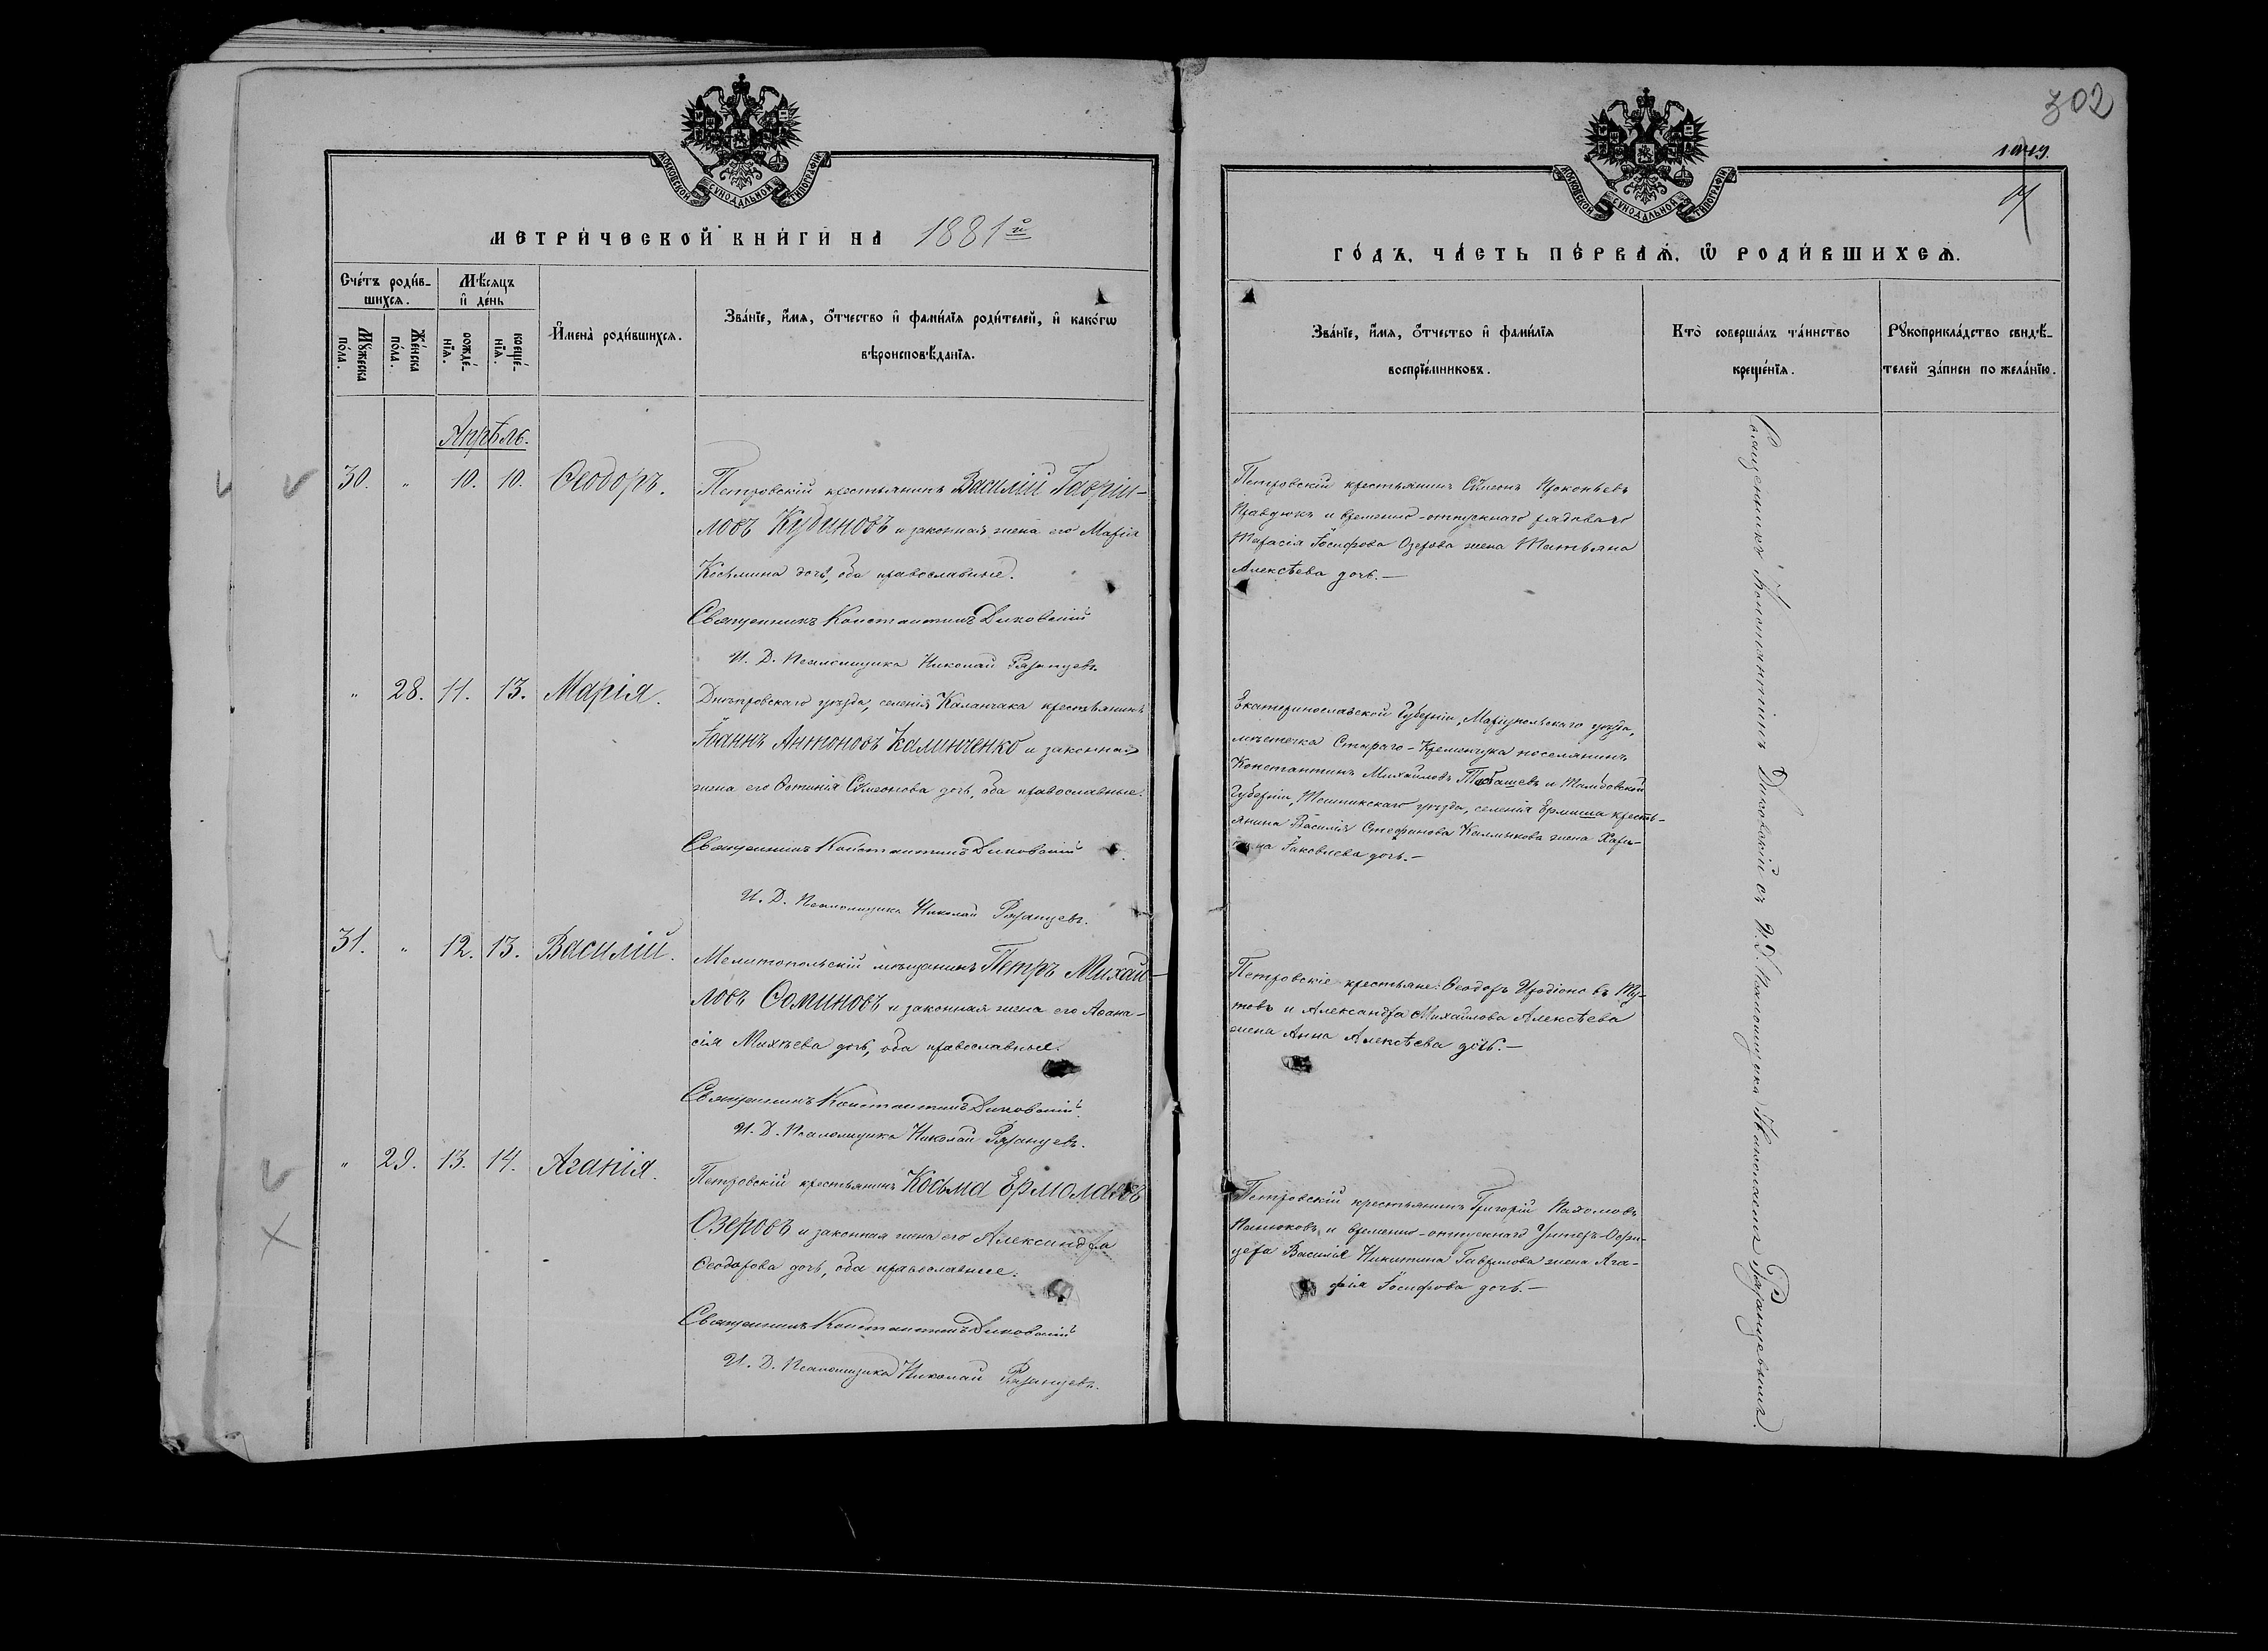 МОСКОВСКОЙ СѴНОДАЛЬНОЙ ТИПОГРАФІИ
МЕТРИЧЕСКОЙ КНИГИ НА 1881й
Счетъ родившихся.
Мѣсяцъ и день
Мужеска пола.
Женска пола.
рожденія.
крещенія.
Имена родившихся.
Званіе, имя, отчество и фамилія родителей, и какогѡ
вѣроисповѣданія.
Апрѣль.
30. " 10. 10. Ѳеодоръ.
Петровскій крестьянинъ Василій Гаврии-
ловъ Кудиновъ и законная жена его Марія
Косьмина дочь, оба православные.
Священникъ Константинъ Диковскій
И. Д. Псаломщика Николай Рязанцевъ.
" 28. 11. 13. Марія.
Днѣпровскаго уѣзда, селенія Каланчака крестьянинъ
Іоаннъ Антоновъ Калинченко и законная
жена его Сѵмеонова дочь, оба православные.
Священникъ Константинъ Диковскій
И. Д. Псаломщика Николай Рязанцевъ.
31. " 12. 13. Василій.
Мелитопольскій мѣщанинъ Петръ Михай-
ловъ Ѳоминовъ и законная жена его Аѳана-
сія Михѣева дочь, оба православные.
Священникъ Константинъ Диковскій
И. Д. Псаломщика Николай Рязанцевъ.
" 29. 13. 14. Агапія.
Петровскій крестьянинъ Косьма Ермолаевъ
Озеровъ и законная жена его Александра
Ѳеодорова дочь, оба православные.
Священникъ Константинъ Диковскій
И. Д. Псаломщика Николай Рязанцевъ.
302
МОСКОВСКОЙ СѴНОДАЛЬНОЙ ТИПОГРАФІИ
ГОДЪ, ЧАСТЬ ПЕРВАЯ, Ѡ РОДИВШИХСЯ.
Званіе, имя, отчество и фамилія
воспріемниковъ.
Кто совершалъ таинство
крещенія.
Рукоприкладство свидѣ-
телей записи по желанію.
Петровскій крестьянинъ Сѵмеонъ Прокопьевъ
Правдюкъ и временно-отпускнаго рядоваго
Тарасія Іосифова Озерова жена Татьяна
Алексѣева дочь.—
Екатеринославской Губерніи, Маріупольскаго уѣзда,
мѣстечка Стараго-Кременчука поселянинъ
Константинъ Михайловъ и Тамбовской
Губерніи, уѣзда, селенія Ермиша кресть-
янина Василія Стефанова Калмыкова жена Хари-
тина Іаковлева дочь.—
Петровскіе крестьяне: Ѳеодоръ Иродіоновъ Ту-
товъ и Александра Михайлова Алексѣева
жена Анна Алексѣева дочь.—
Петровскій крестьянинъ Григорій Пахомовъ
Панюковъ и временно-отпускнаго Унтеръ-Офи-
цера Василія Никитина Гаврилова жена Ага-
фія Іосифова дочь.—
Священникъ Константинъ Диковскій съ И. Д. Псаломщика Николаемъ Рязанцевымъ.